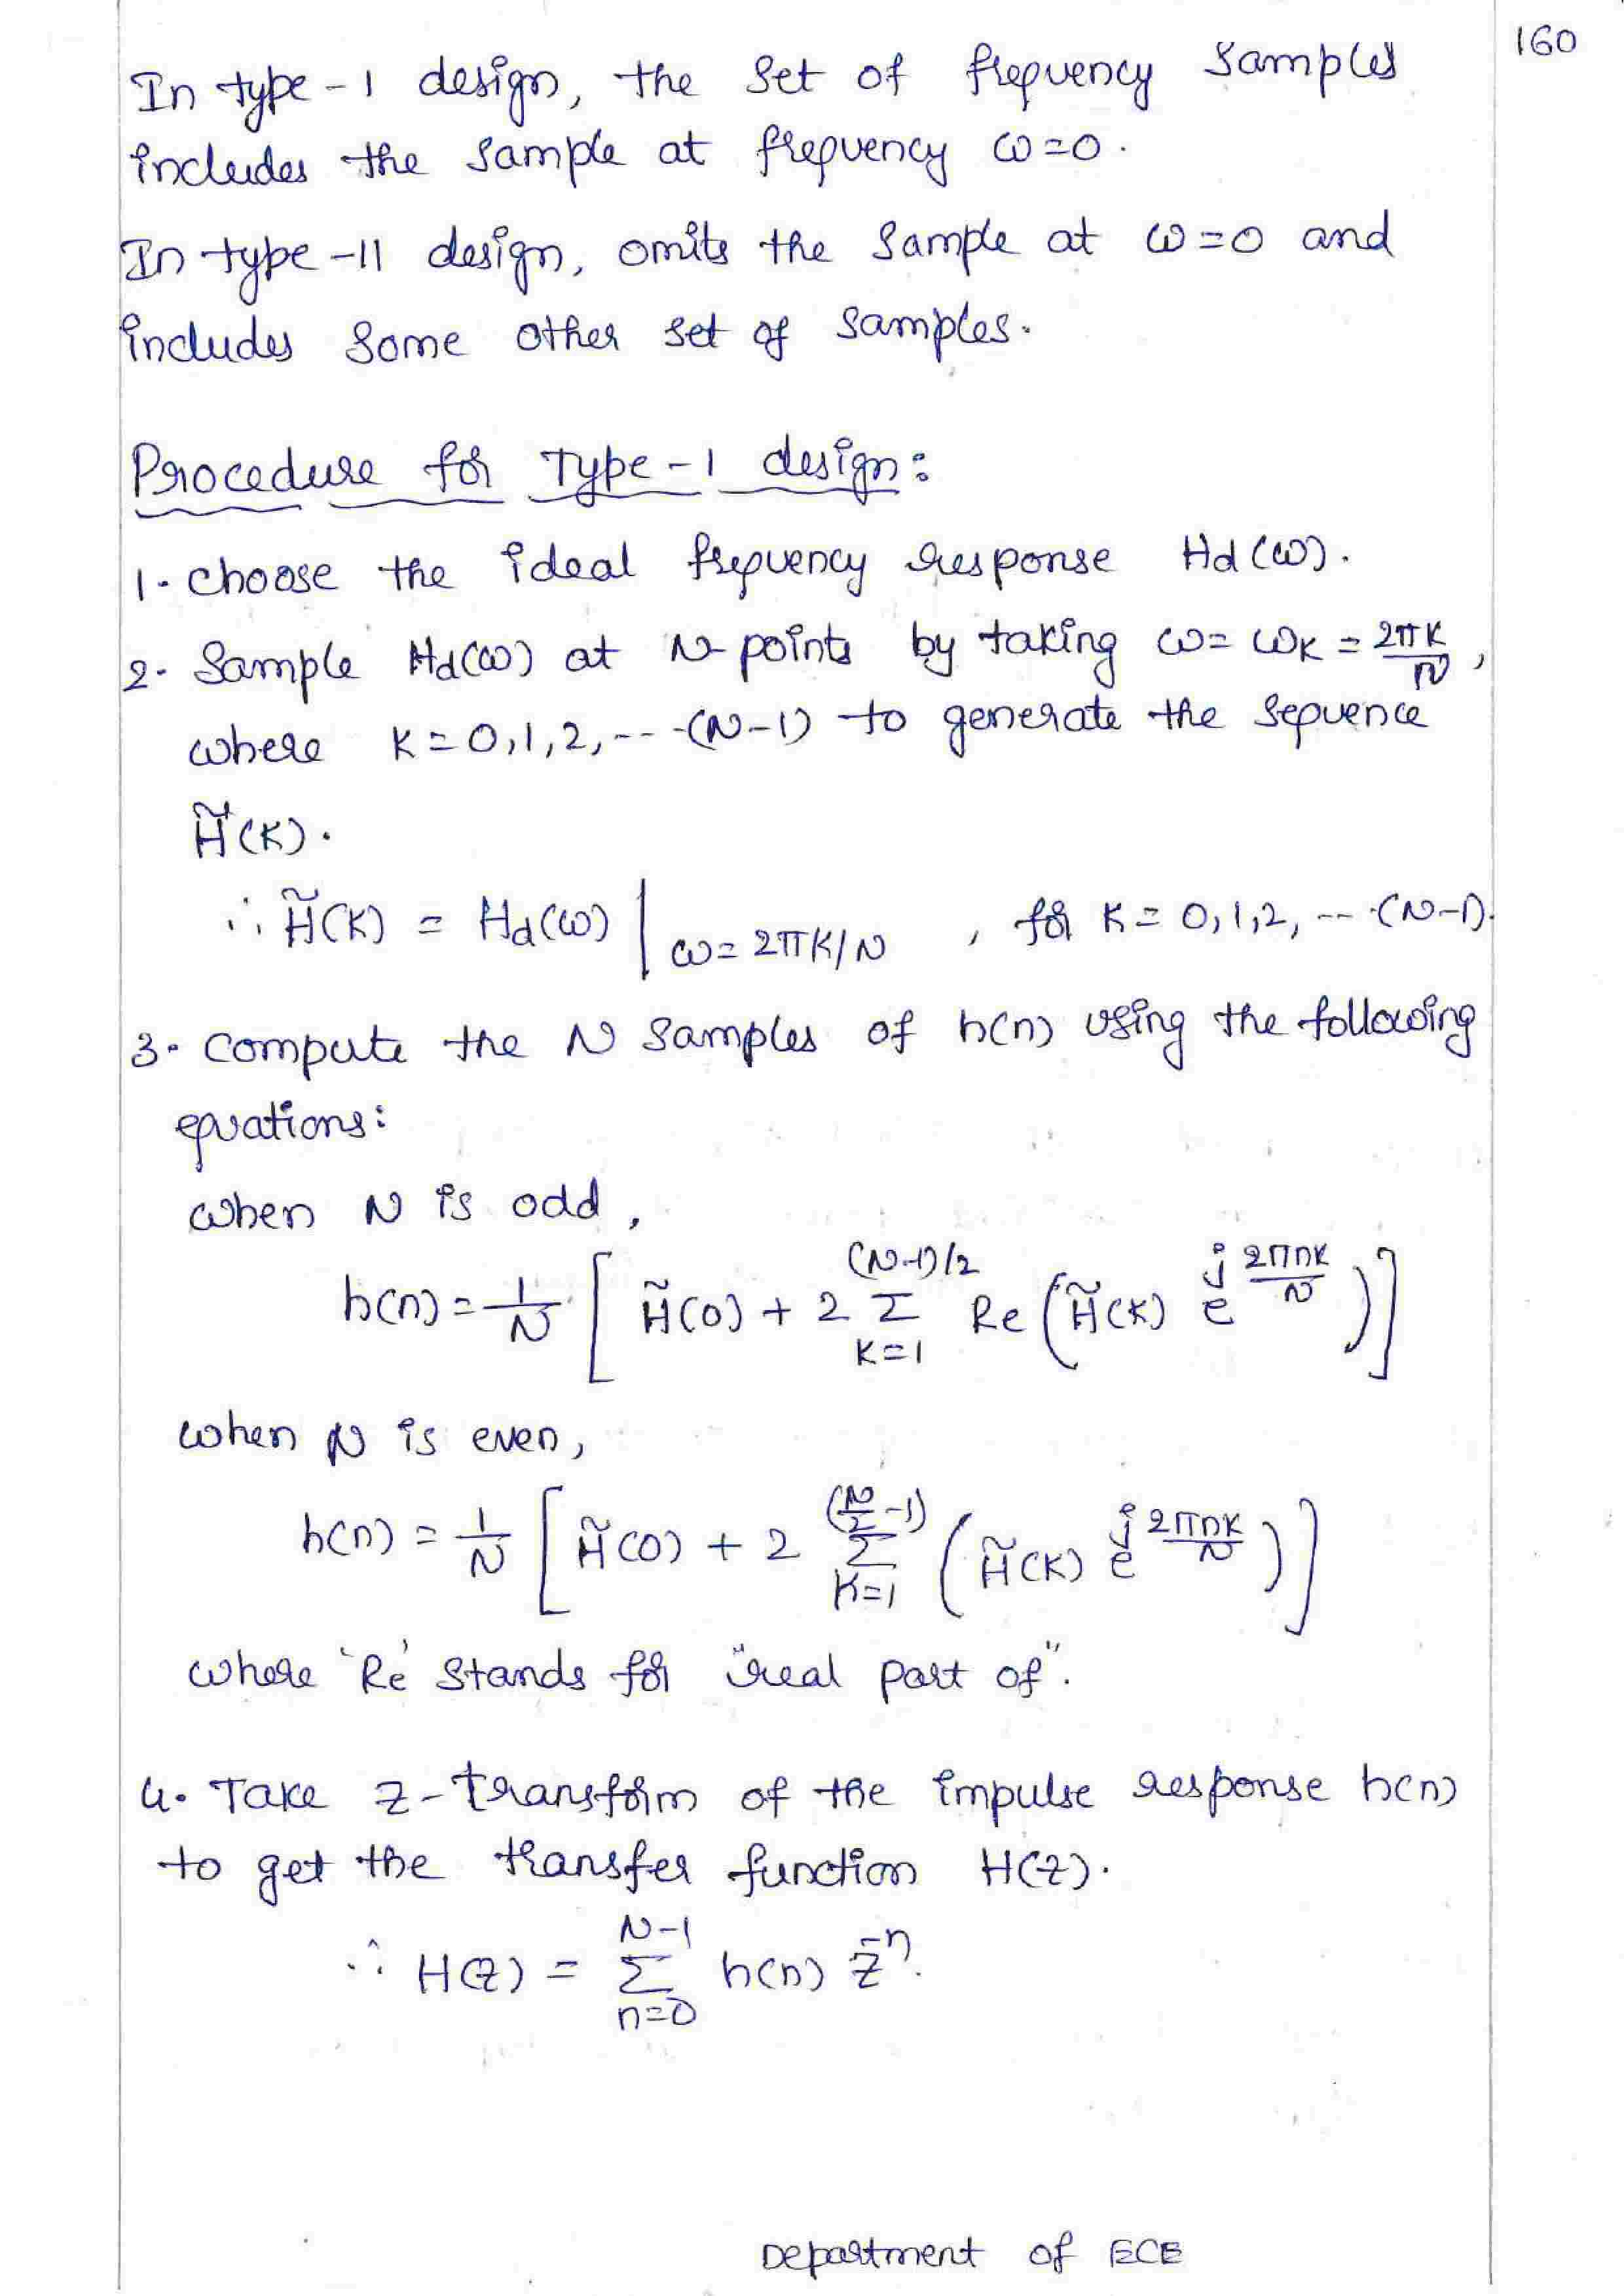 160
In type-1 design, the set of frequency samples
includes the sample at frequency ω=0.
In type-11 design, omits the sample at ω=0 and
includes some other set of samples.
Procedure for Type-1 design:
1. choose the ideal frequency response Hd(ω).
2. Sample Hd(ω) at N-points by taking ω = ωK = 2πK/N,
where K=0,1,2,---(N-1) to generate the sequence
H̃(K).
∴ H̃(K) = Hd(ω) | ω=2πK/N , for K=0,1,2,---(N-1).
3. compute the N samples of h(n) using the following
equations:
when N is odd,
h(n) = 1/N [ H̃(0) + 2 Σ_{K=1}^{(N-1)/2} Re ( H̃(K) e^{j 2πnK/N} ) ]
when N is even,
h(n) = 1/N [ H̃(0) + 2 Σ_{K=1}^{(N/2 -1)} ( H̃(K) e^{j 2πnK/N} ) ]
where 'Re' stands for "real part of".
4. Take Z-transform of the impulse response h(n)
to get the transfer function H(Z).
∴ H(Z) = Σ_{n=0}^{N-1} h(n) Z^{-n}.
Department of ECE